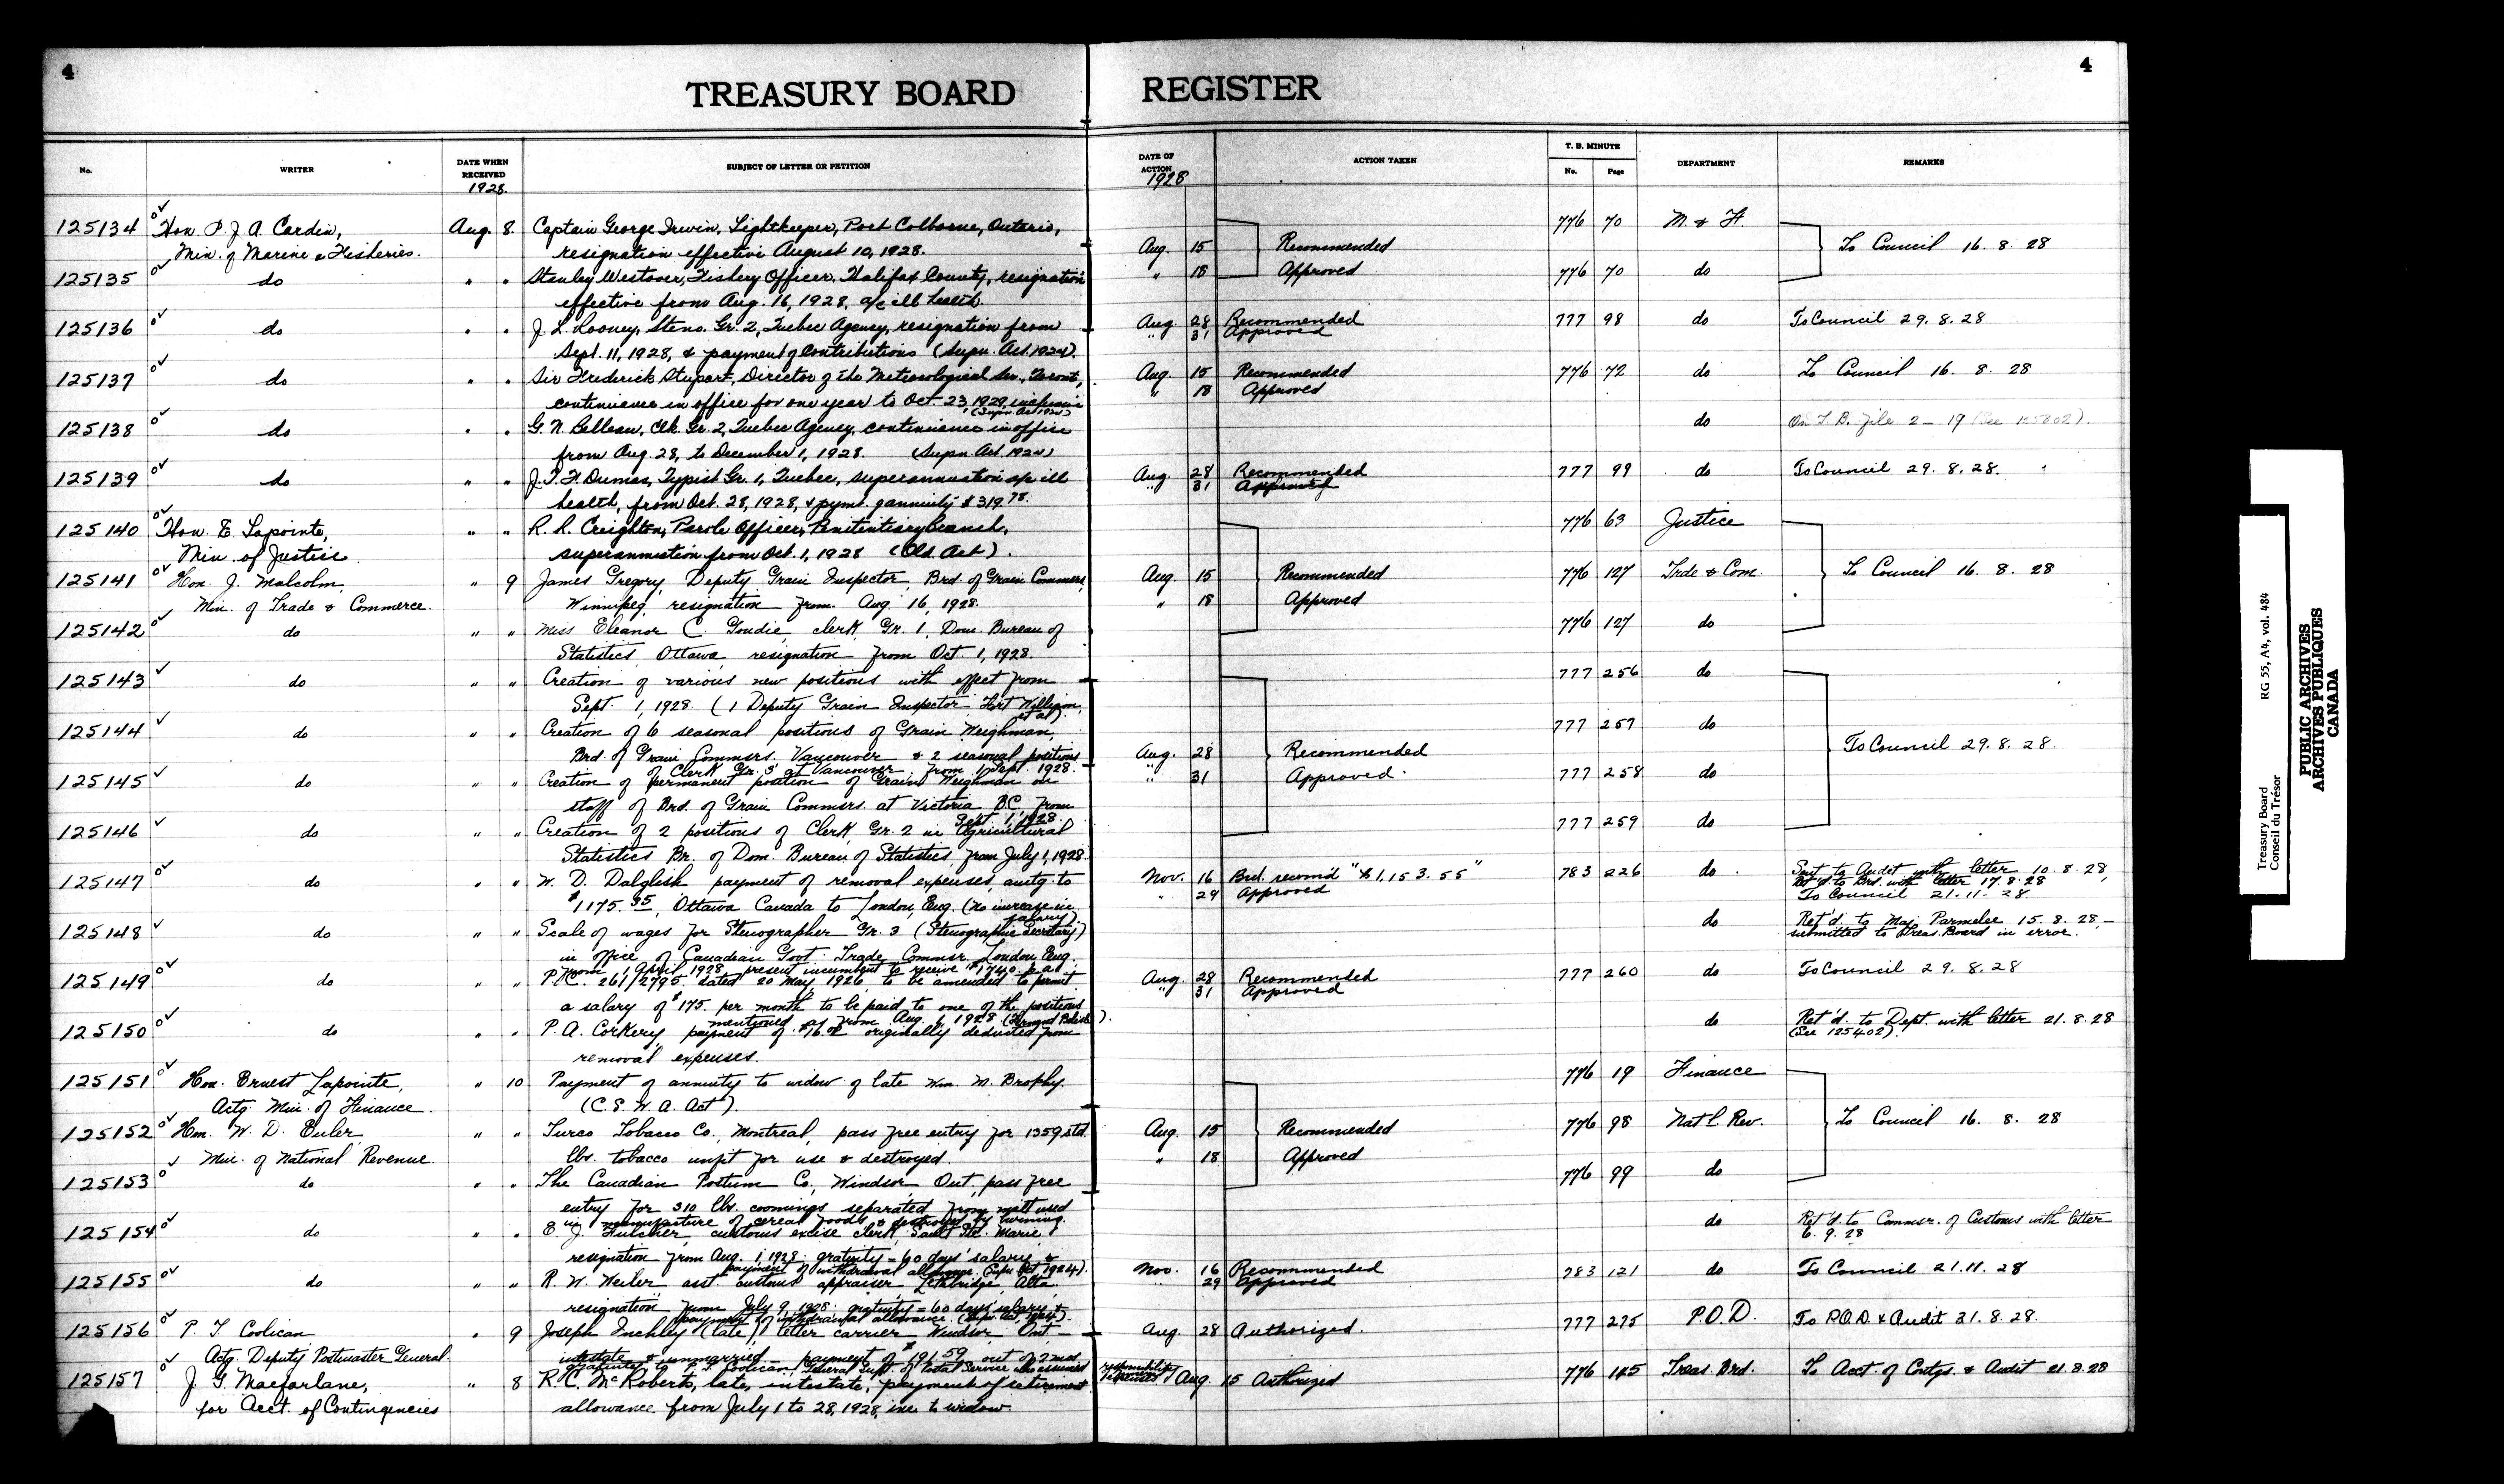 4
TREASURY BOARD REGISTER
4
No. WRITER DATE WHEN RECEIVED SUBJECT OF LETTER OR PETITION DATE OF ACTION ACTION TAKEN T. B. MINUTE No. Page DEPARTMENT REMARKS
1928. 1928
125134 Hon. P. J. A. Cardin, Aug. 8. Captain George Irwin, Lightkeeper, Port Colborne, Ontario, 776 70 M. & F.
Min. of Marine & Fisheries. resignation effective August 10, 1928. Aug. 15 Recommended To Council 16. 8. 28
125135 do " " Stanley Westover, Fishery Officer, Halifax County, resignation " 18 Approved 776 70 do
effective from Aug. 16, 1928, a/c ill health.
125136 do " " J. L. Rooney, Steno. Gr. 2, Quebec Agency, resignation from Aug. 28 Recommended 777 98 do To Council 29. 8. 28
Sept. 11, 1928, & payment of contributions (Supn. Act. 1924). " 31 Approved
125137 do " " Sir Frederick Stupart, Director of the Meteorological Ser., Toronto, Aug. 15 Recommended 776 72 do To Council 16. 8. 28
continuance in office for one year to Oct. 23 1929, inclusive " 18 Approved
(Supn. Act 1924)
125138 do " " G. N. Belleau, Clk. Gr. 2, Quebec Agency, continuance in office do On T. B. File 2 - 19 (See 125802).
from Aug. 28, to December 1, 1928. (Supn. Act. 1924)
125139 do " " J. T. F. Dumas, Typist Gr. 1, Quebec, superannuation a/c ill Aug. 28 Recommended 777 99 do To Council 29. 8. 28.
health, from Oct. 28, 1928, & pymt. annuity $319.78. " 31 Approved
125140 Hon. E. Lapointe, " " R. R. Creighton, Parole Officer, Penitentiary branch, 776 63 Justice
Min. of Justice superannuation from Oct. 1, 1928 (Old Act).
125141 Hon. J. Malcolm, " 9 James Gregory, Deputy Grain Inspector, Brd. of Grain Commrs, Aug. 15 Recommended 776 127 Trde & Com. To Council 16. 8. 28
Min. of Trade & Commerce. Winnipeg, resignation from Aug. 16, 1928. " 18 Approved
125142 do " " Miss Eleanor C. Goudie, clerk, Gr. 1, Dom. Bureau of 776 127 do
Statistics, Ottawa, resignation from Oct. 1, 1928.
125143 do " " Creation of various new positions with effect from 777 256 do
Sept. 1, 1928. (1 Deputy Grain Inspector Fort William,
et al).
125144 do " " Creation of 6 seasonal positions of Grain Weighman, 777 257 do
Brd. of Grain Commrs. Vancouver & 2 seasonal positions Aug. 28 Recommended To Council 29. 8. 28.
of Clerk Gr. 3 at Vancouver from 1 Sept. 1928.
125145 do " " Creation of permanent position of Grain Weighman on " 31 Approved. 777 258 do
staff of Brd. of Grain Commrs. at Victoria B.C. from
Sept. 1, 1928
125146 do " " Creation of 2 positions of Clerk, Gr. 2 in Agricultural 777 259 do
Statistics Br. of Dom. Bureau of Statistics, from July 1, 1928.
125147 do " " W. D. Dalglish payment of removal expenses, amtg. to Nov. 16 Brd. recom'd "$1,153.55" 783 226 do Sent to Audit with letter 10. 8. 28,
Ret'd. to Brd. with letter 17. 8. 28
$1175.35, Ottawa Canada to London, Eng. (no increase in " 29 Approved To Council 21. 11. 28.
salary).
125148 do " " Scale of wages for Stenographer Gr. 3 (Stenographic Secretary) do Ret'd. to Maj. Parmelee 15. 8. 28, -
in office of Canadian Govt. Trade Commsr. London Eng. submitted to Treas. Board in error.
from 1 April, 1928, present incumbent to receive $1740. p.a.
125149 do " " P.C. 261/2795 dated 20 May, 1926, to be amended to permit Aug. 28 Recommended 777 260 do To Council 29. 8. 28
a salary of $175. per month to be paid to one of the positions " 31 Approved
mentioned as from Aug. 1, 1928
125150 do " " P. A. Corkery, payment of originally deducted from do Ret'd. to Dept. with letter 21. 8. 28
removal expenses. (See 125402).
125151 Hon. Ernest Lapointe, " 10 Payment of annuity to widow of late Wm. M. Brophy. 776 19 Finance
Actg. Min. of Finance. (C. S. W. A. Act).
125152 Hon. W. D. Euler, " " Turco Tobacco Co., Montreal, pass free entry for 1359 std. Aug. 15 Recommended 776 98 Nat'l. Rev. To Council 16. 8. 28
Min. of National Revenue. lbs. tobacco unfit for use & destroyed. " 18 Approved
125153 do " " The Canadian Postum Co., Windsor, Ont., pass free 776 99 do
entry for 310 lbs. coomings separated from malt used
in manufacture of cereal foods & destroyed by burning.
125154 do " " E. J. Fulcher, customs excise clerk, Sault Ste. Marie, do Ret'd. to Commsr. of Customs with letter
resignation from Aug. 1, 1928; gratuity = 60 days' salary & 6. 9. 28
payment of withdrawal allowance. (Supn. Act 1924).
125155 do " " R. W. Weiler, asst. customs appraiser, Lethbridge, Alta. Nov. 16 Recommended 783 121 do To Council 21. 11. 28
resignation from July 9, 1928; gratuity = 60 days' salary & " 29 Approved
payment of withdrawal allowance. (Supn. Act, 1924).
125156 P. T. Coolican " 9 Joseph Inchley (late) letter carrier Windsor Ont. - Aug. 28 Authorized. 777 275 P.O.D. To P.O.D. & Audit 31. 8. 28.
Actg. Deputy Postmaster General. intestate & unmarried payment of $191.59 out of 2 mos.
gratuity to P. T. Coolican, General Supt. of Postal Service who assumed responsibility
125157 J. G. Macfarlane, " 8 R. C. McRoberts, late, intestate, payment of retirement Aug. 15 Authorized 776 145 Treas. Brd. To Acct. of Contgs. & Audit 21. 8. 28
for Acct. of Contingencies allowance from July 1 to 28, 1928, inc. to widow.
Treasury Board RG 55, A4, vol. 484
Conseil du Trésor
PUBLIC ARCHIVES
ARCHIVES PUBLIQUES
CANADA